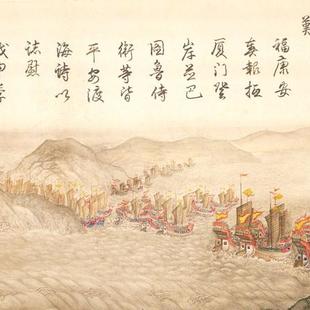 福康安
奏報抵
厦門登
岸並巴
圖魯侍
衛等皆
平安渡
海詩以
誌慰